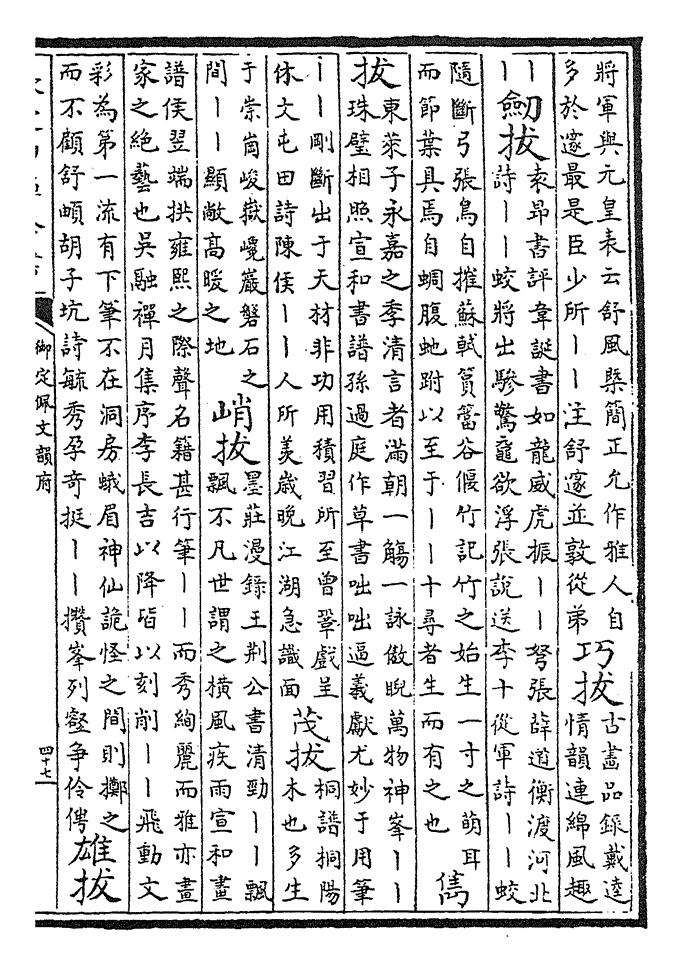 將軍與元皇表云舒風槩簡正允作雅人自
多於邃最是臣少所丨丨注舒邃並敦從弟
巧拔
古畫品錄戴逵
情韻連綿風趣
丨丨
劒拔
袁昂書評韋誕書如龍威虎振丨丨弩張薛道衡渡河北
詩丨丨蛟將出驂驚黿欲浮張說送李十從軍詩丨丨蛟
隨斷弓張鳥自摧蘇軾篔簹谷偃竹記竹之始生一寸之萌耳
而節葉具焉自蜩腹虵跗以至于丨丨十尋者生而有之也
雋
拔
東萊子永嘉之季清言者滿朝一觴一詠傲睨萬物神峯丨丨
珠璧相照宣和書譜孫過庭作草書咄咄逼羲獻尤妙于用筆
丨丨剛斷出于天材非功用積習所至曾鞏戲呈
休文屯田詩陳侯丨丨人所羡歲晚江湖急識面
茂拔
桐譜桐陽
木也多生
于崇崗峻嶽巉巖磐石之
間丨丨顯敞高暖之地
峭拔
墨莊漫錄王荆公書清勁丨丨飄
飄不凡世謂之橫風疾雨宣和畫
譜侯翌端拱雍熙之際聲名籍甚行筆丨丨而秀絢麗而雅亦畫
家之絶藝也吳融禪月集序李長吉以降皆以刻削丨丨飛動文
彩為第一流有下筆不在洞房蛾眉神仙詭怪之間則擲之
而不顧舒頔胡子坑詩毓秀孕奇挺丨丨攢峯列壑争伶俜
雄拔
御定佩文韻府
四十七